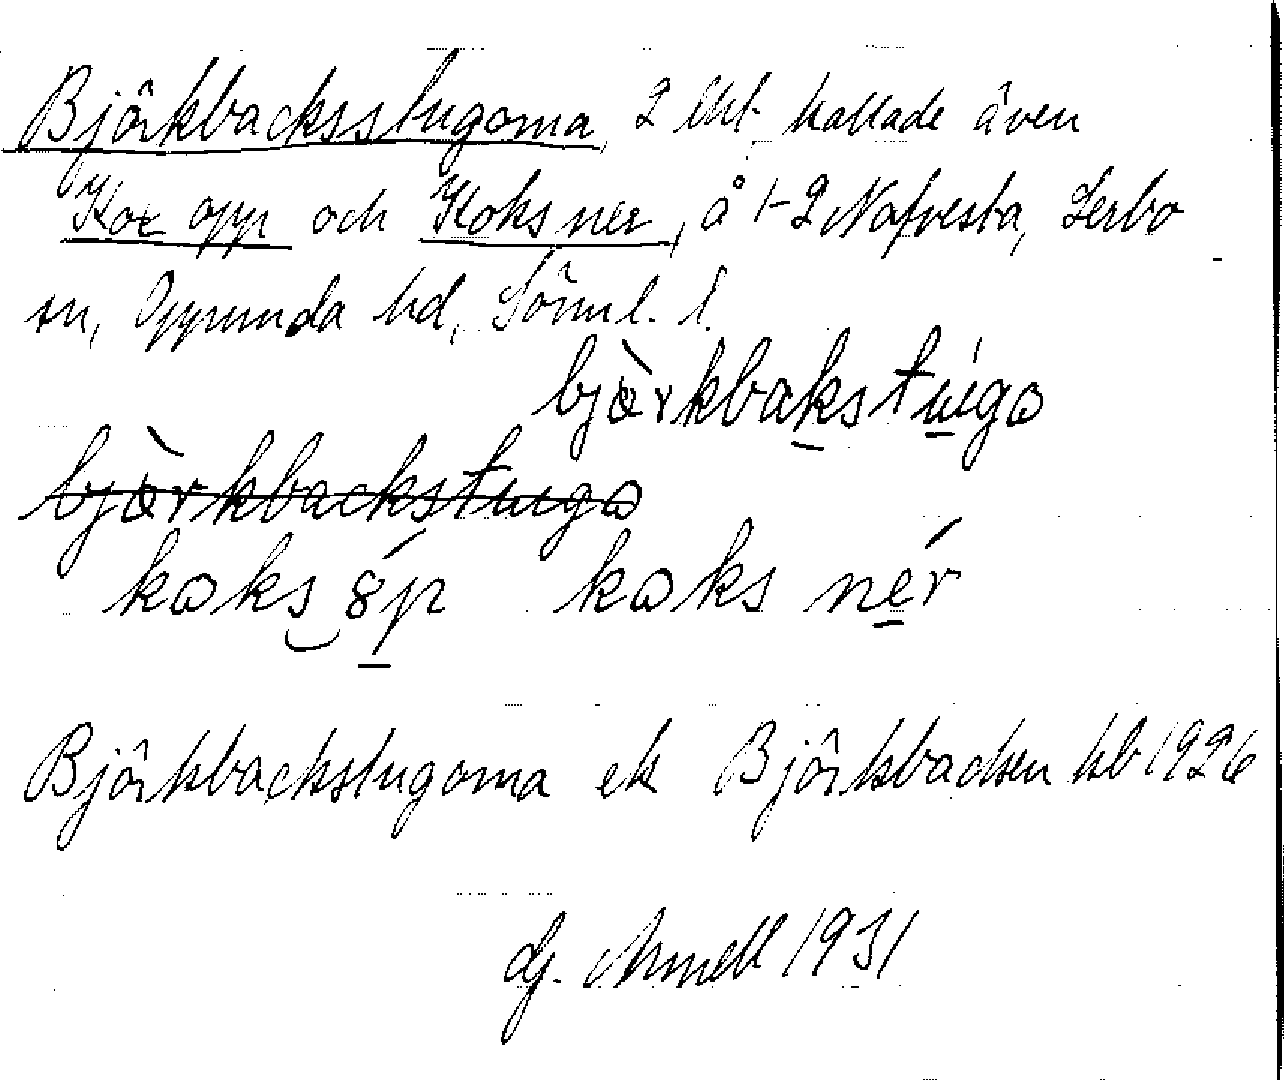 Björkbacksstugorna, 2 lht kallade även
Kox opp och Koks ner, å 1-2 Nafvesta, Lerbo
sn, Oppunda hd, Sörml. l.
bjòrkbakstúgo
bjòrkbackstugo
koks óp koks nér
Björkbackstugorna ek Björkbacken kb 1926
Gj. 1931